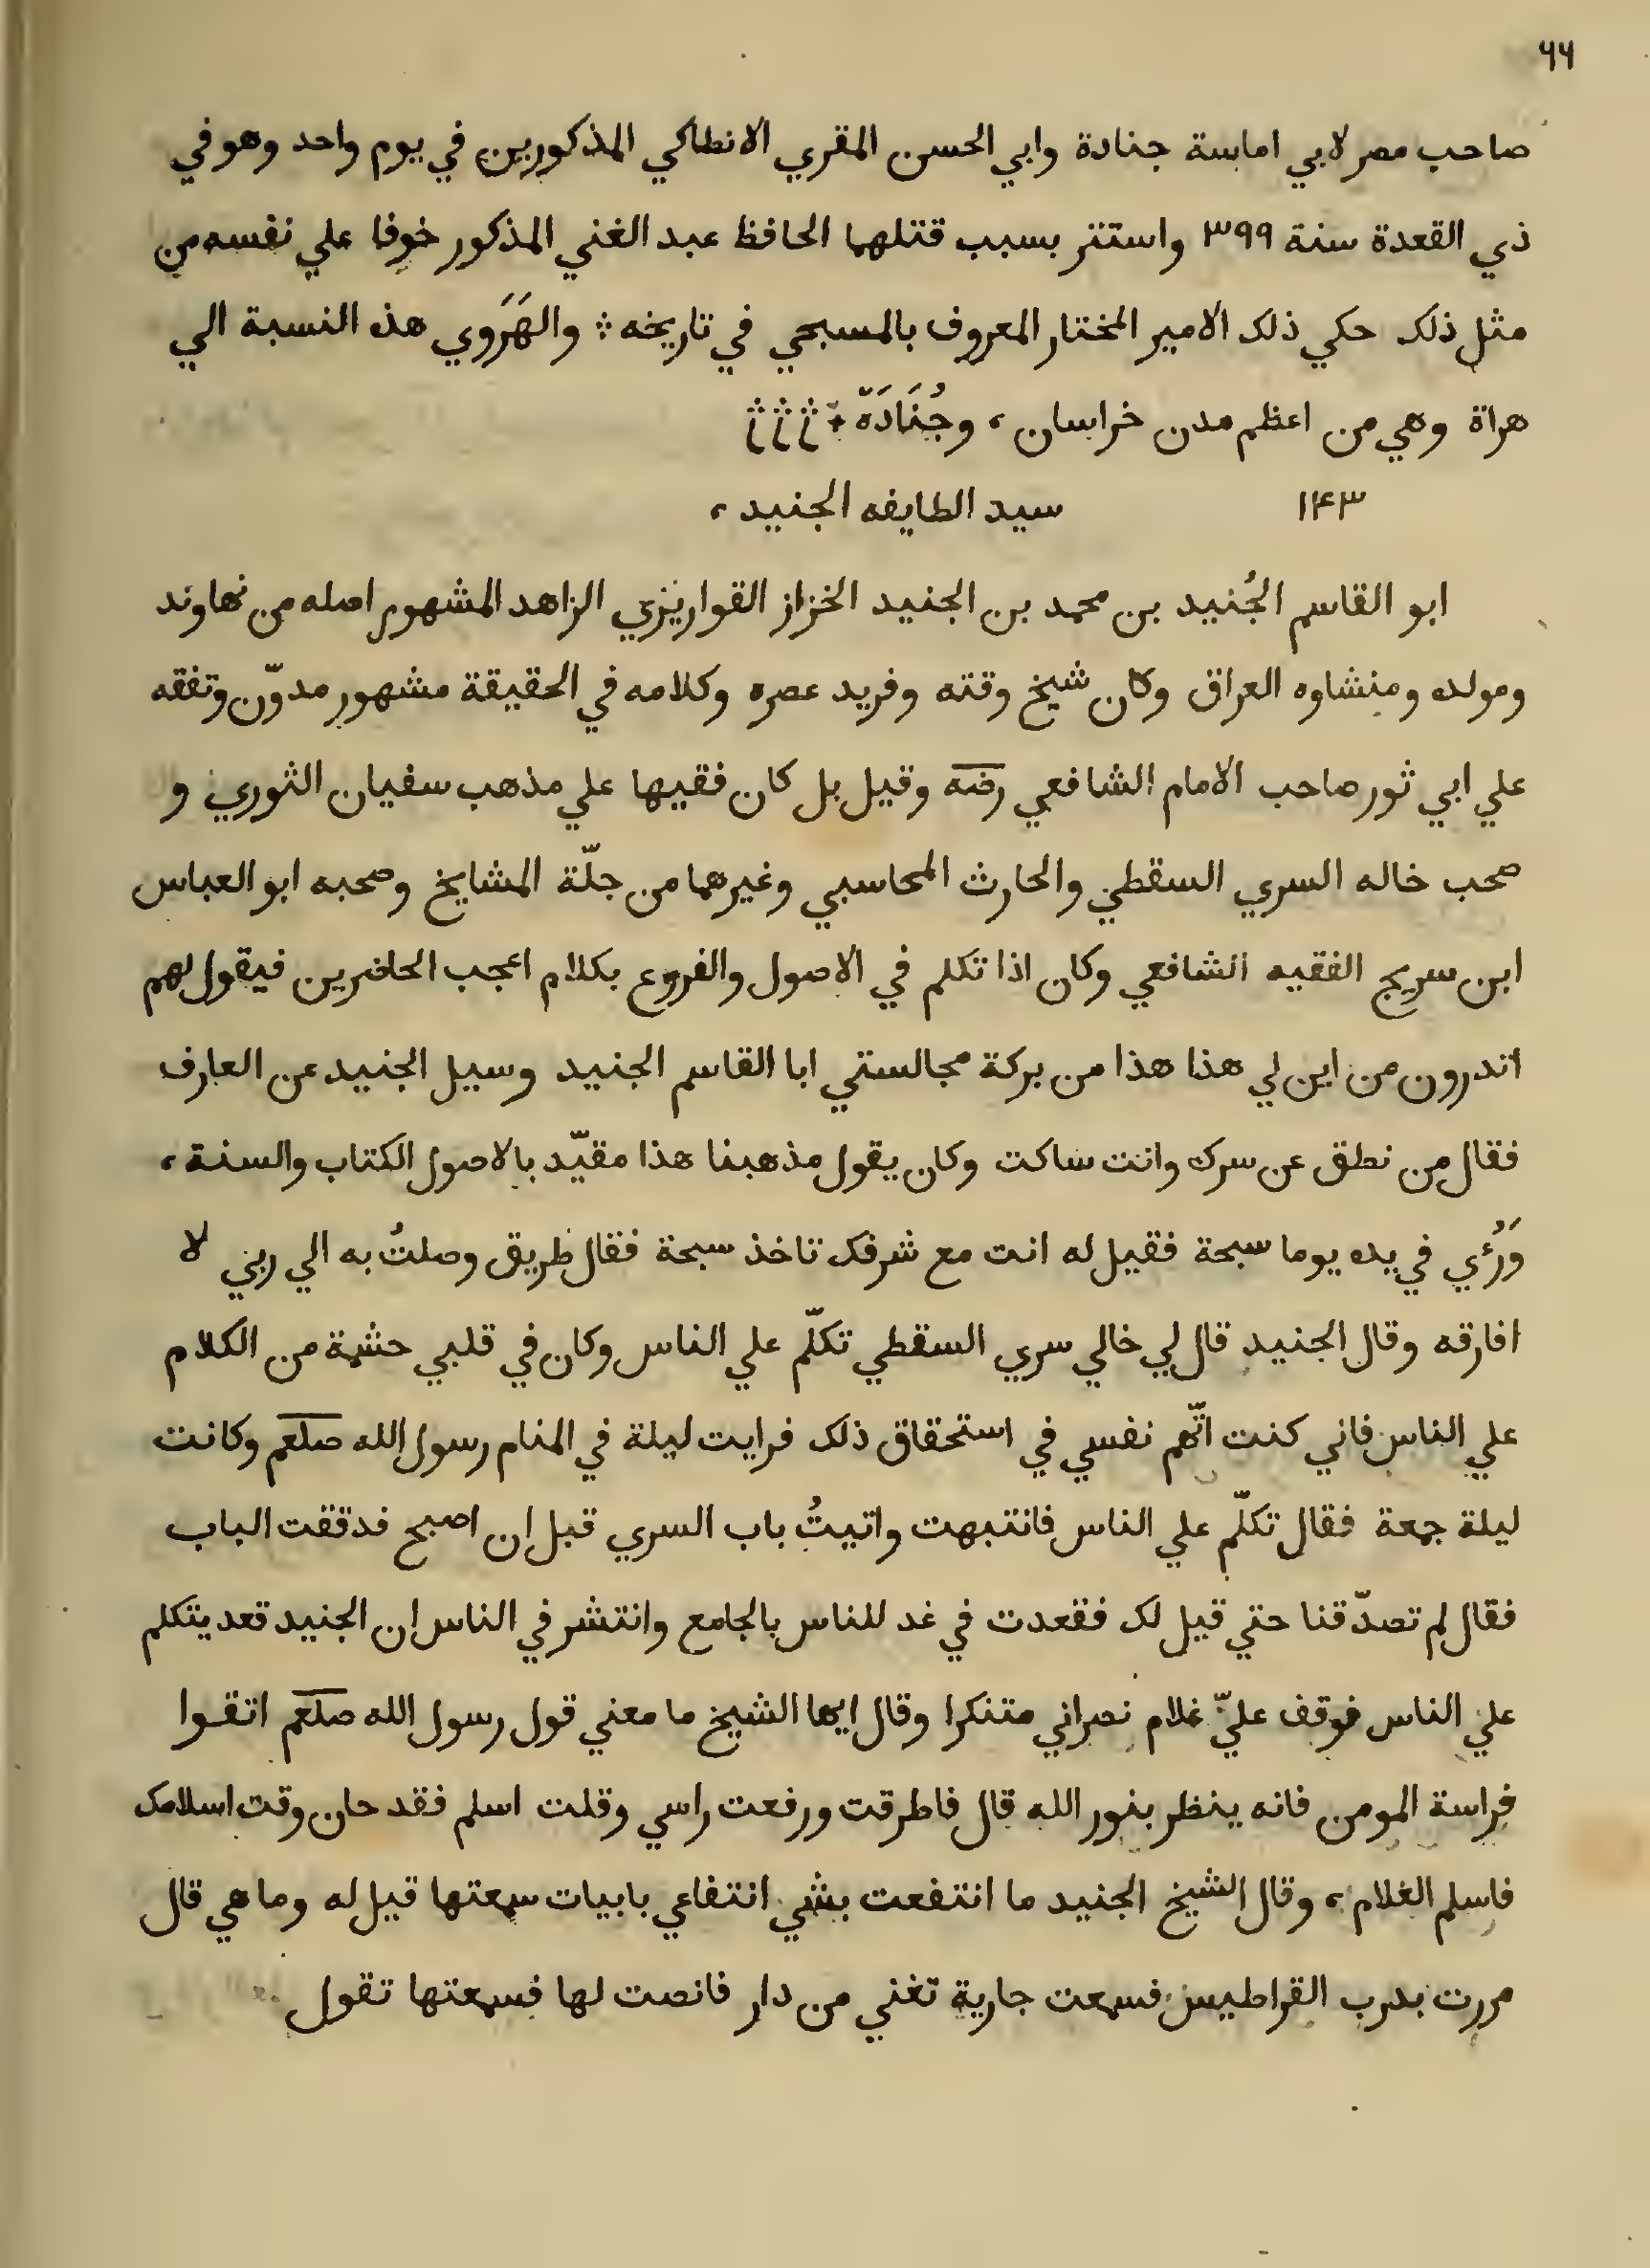 ٦٦
صاحب مصر لابي اماسة جنادة وابي الحسن المقري الانطاكي المذكورين في يوم واحد وهو في
ذي القعدة سنة ٣٩٩ واستتر بسبب قتلهما الحافظ عبد الغني المذكور خوفا علي نفسه من
مثل ذلك حكي ذلك الامير المختار المعروف بالمسبحي في تاريخه ⁘ والهَرَوي هذه النسبة الي
هراة وهي من اعظم مدن خراسان، وجُنَادَة
١٤٣ سيد الطايفه الجنيد،
ابو القاسم الجُنيد بن محمد بن الجنيد الخزاز القواريزي الزاهد المشهور اصله من نهاوند
ومولده ومنشاوه العراق وكان شيخ وقته وفريد عصره وكلامه في الحقيقة مشهور مدوّن وتفقه
علي ابي ثور صاحب الامام الشافعي رضه وقيل بل كان فقيها علي مذهب سفيان الثوري و
صحب خاله السري السقطي والحارث المحاسبي وغيرهما من جلّة المشايخ وصحبه ابو العباس
ابن سريج الفقيه الشافعي وكان اذا تكلم في الاصول والفروع بكلام اعجب الحاضرين فيقول لهم
اتدرون من اين لي هذا هذا من بركة مجالستي ابا القاسم الجنيد وسيل الجنيد عن العارف
فقال من نطق عن سرك وانت ساكت وكان يقول مذهبنا هذا مقيّد بالاصول الكتاب والسنة،
وَرُئي في يده يوما سبحة فقيل له انت مع شرفك تاخذ سبحة فقال طريق وصلتُ به الي ربي لا
افارقه وقال الجنيد قال لي خالي سري السقطي تكلّم علي الناس وكان في قلبي حشمة من الكلام
علي الناس فاني كنت اتّهم نفسي في استحقاق ذلك فرايت ليلة في المنام رسول الله صلعم وكانت
ليلة جمعة فقال تكلّم علي الناس فانتبهت واتيتُ باب السري قبل ان اصبح فدققت الباب
فقال لم تصدّقنا حتي قيل لك فقعدت في غد للناس بالجامع وانتشر في الناس ان الجنيد قعد يتكلم
علي الناس فوقف عليّ غلام نصراني متنكرا وقال ايها الشيخ ما معني قول رسول الله صلعم اتقوا
فراسة المومن فانه ينظر بنور الله قال فاطرقت ورفعت راسي وقلت اسلم فقد حان وقت اسلامك
فاسلم الغلام، وقال الشيخ الجنيد ما انتفعت بشي انتفاعي بابيات سمعتها قيل له وما هي قال
مررت بدرب القراطيس فسمعت جارية تغني من دار فانصت لها فسمعتها تقول